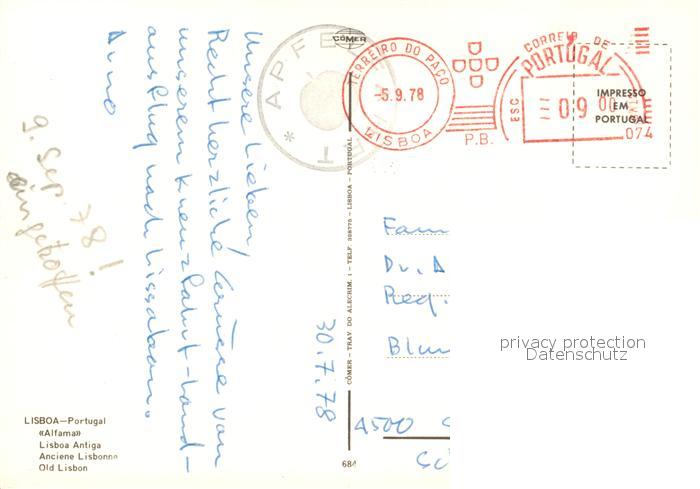 Unsere Lieben!
Recht herzliche Grüsse von
unserem Kreuzfahrt-Land-
ausflug nach Lissabon.
Arno
30.7.78
9. Sep. 78!
eingetroffen
LISBOA—Portugal
«Alfama»
Lisboa Antiga
Anciene Lisbonne
Old Lisbon
CÓMER
CÓMER — TRAV. DO ALECRIM, 1 — TELF. 328775 — LISBOA — PORTUGAL
684
APFE
TERREIRO DO PAÇO
-5.9.78
LISBOA
P.B.
CORREIO DE
PORTUGAL
ESC
09 00
074
IMPRESSO
EM
PORTUGAL
Fam
Dr. A
Reg.
Blum
4500
privacy protection
Datenschutz